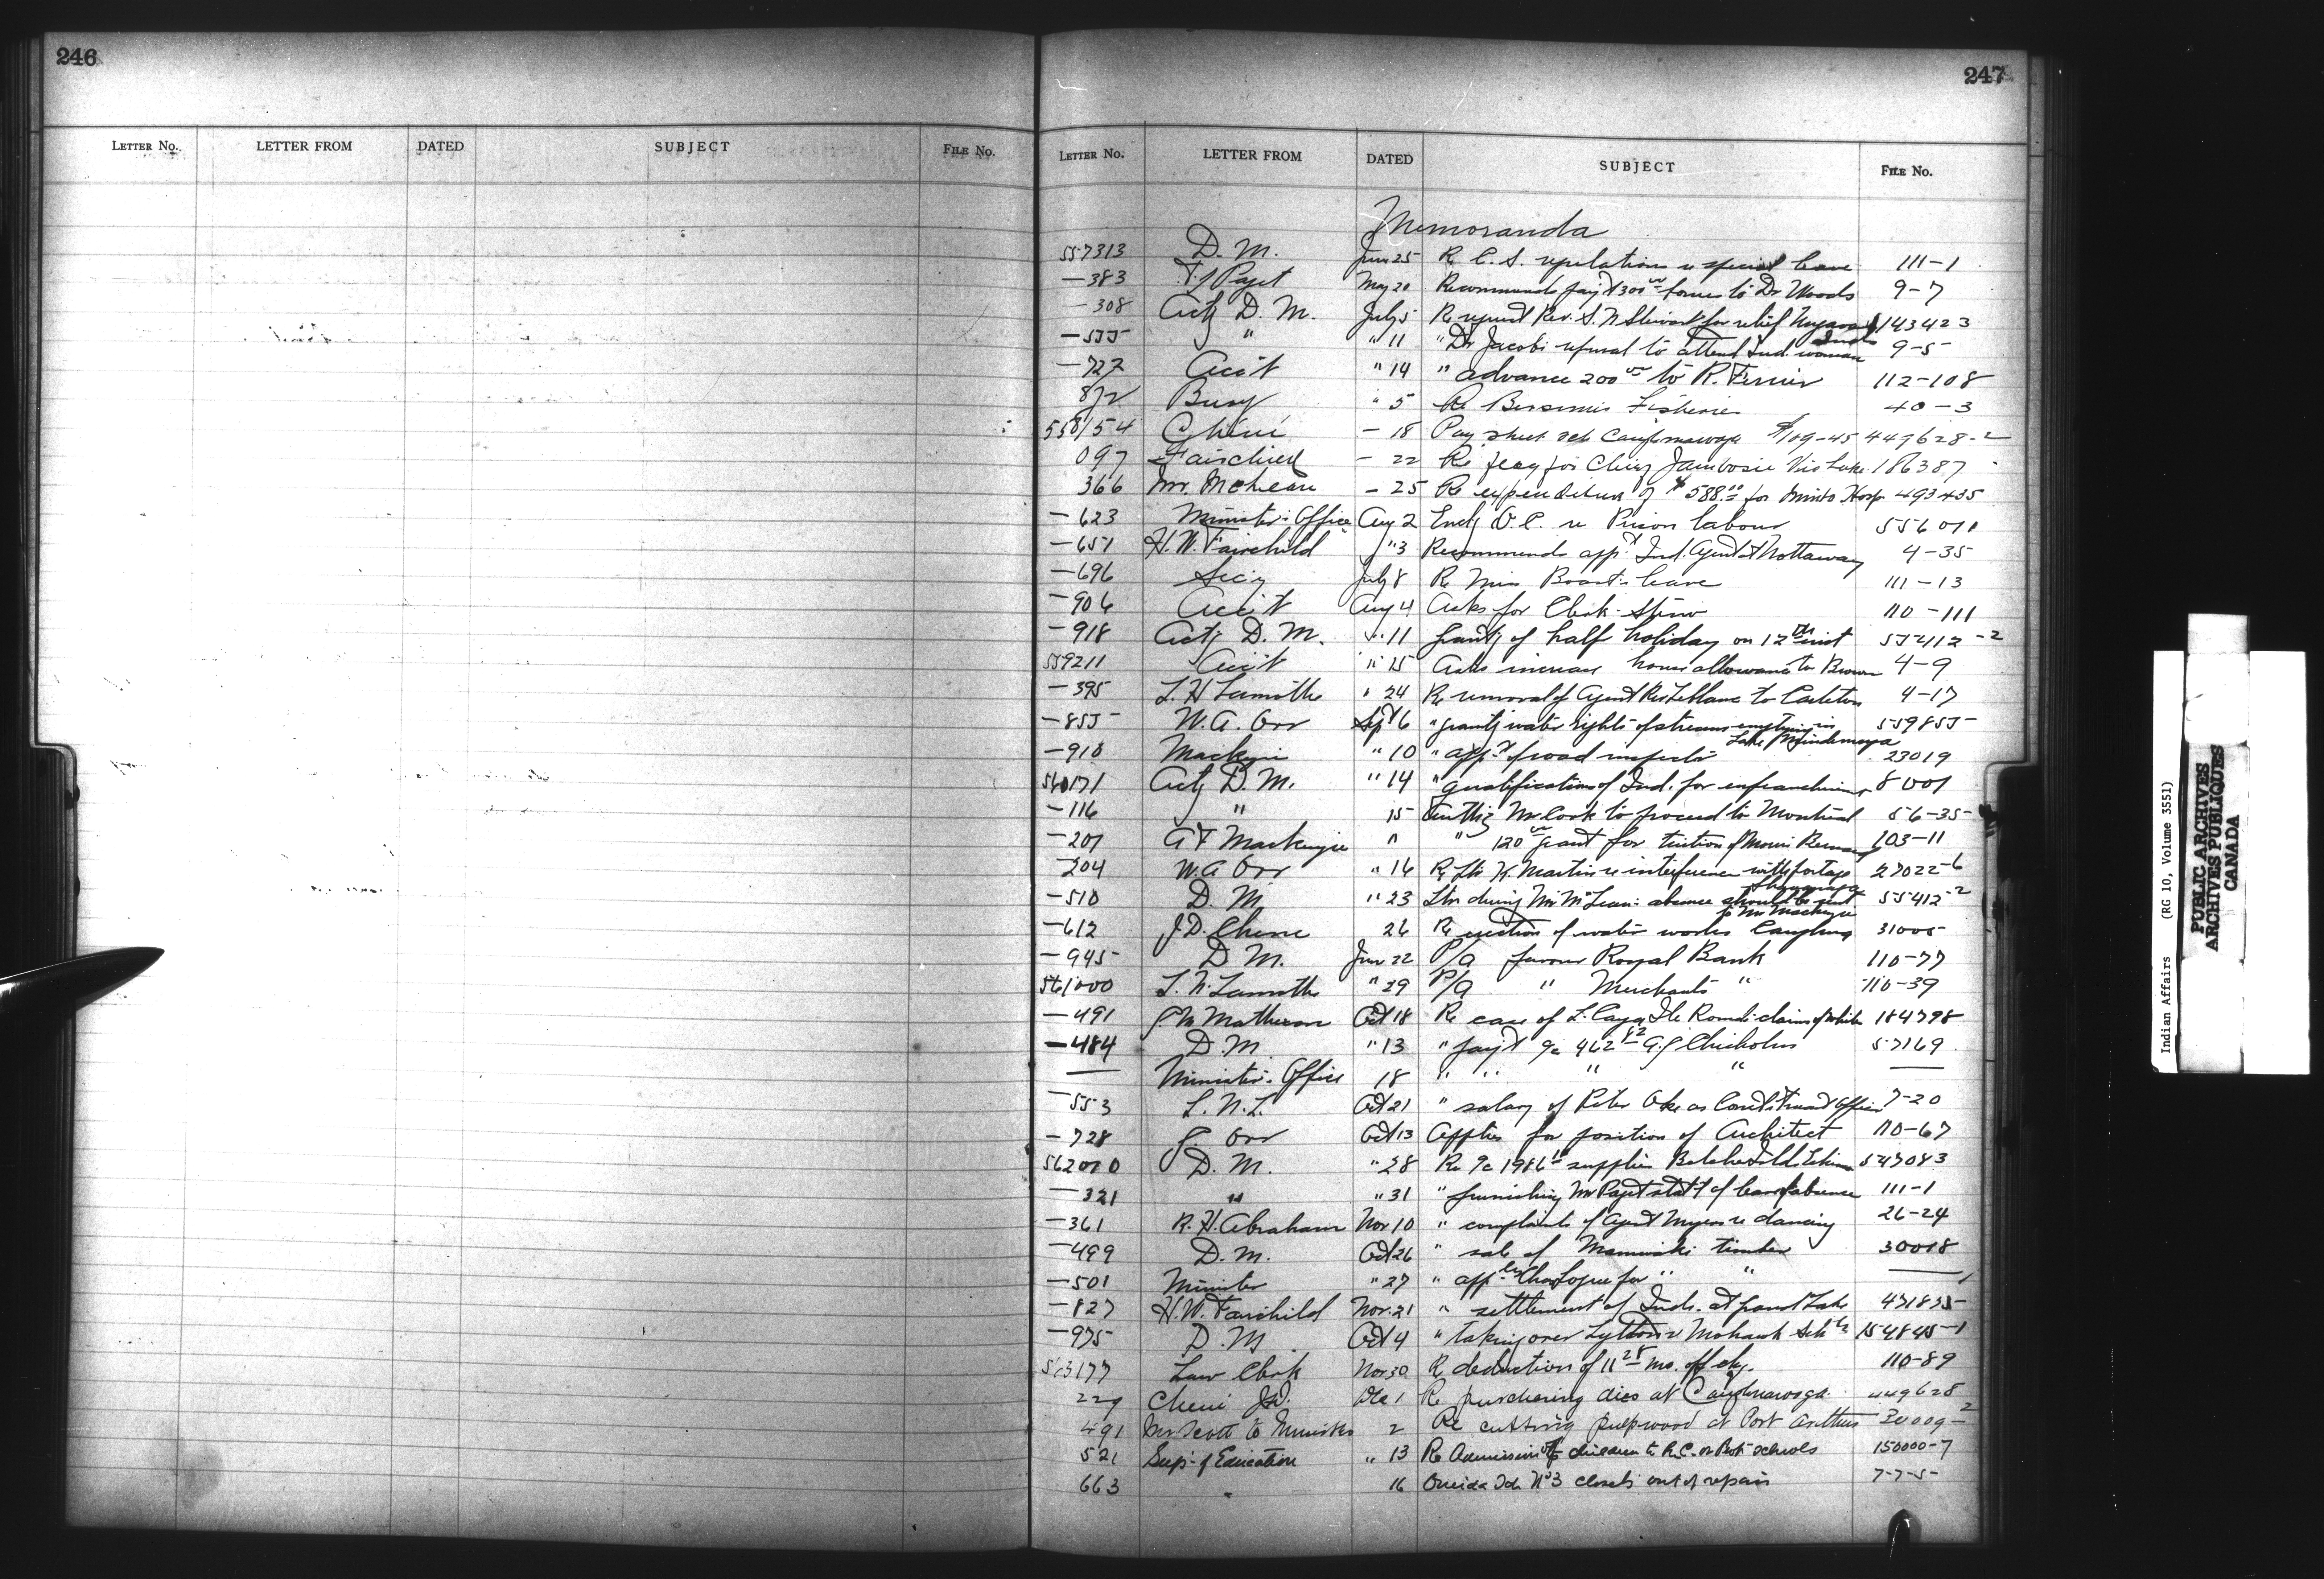 246
LETTER No. LETTER FROM DATED SUBJECT FILE No.
247
LETTER No. LETTER FROM DATED SUBJECT FILE No.
Memoranda
557313 D. M. June 25 Re C. S. regulations re special leave 111-1
-383 Paget May 20 Recommends pay't 300 00 to Dr Woods 9-7
-308 Actg D. M. July 5 Re request Rev. S. for relief 143423
-555 " " 11 " Dr Jacobi refusal to attend Ind. woman 9-5
-727 Acc't " 14 " advance 200 00 to R. Ferrier 112-108
872 " 5 Re Bersimis Fisheries 40-3
558154 Chéné - 18 Pay sheet Caughnawaga $109-45 449628-2
097 Fairchild - 22 Re flag for Chief 186387
366 Mr. McLean - 25 Re expenditure of $588.00 for Hosp 493435
-623 Minister's Office Aug 2 Encl O.C. re Prison labour 556011
-651 H. W. Fairchild " 3 Recommends app't Ind. Agent at Nottaway 4-35
-696 Sec'y July 8 Re Miss Brant's leave 111-13
-906 Acc't Aug 4 Asks for Clerk-Steno 110-111
-918 Actg D. M. " 11 grantg of half holiday on 12th inst 55412-2
559211 Acc't " 15 Asks increase house allowance to Brown 4-9
-395 " 24 Re removal of Agent to Carleton 4-17
-855 W. A. Orr Sept 6 " grantg water rights of streams emptying in 559855
Lake Mindemoya
-910 Mackenzie " 10 " app't of road inspector 23019
560171 Actg D. M. " 14 " qualifications of Ind. for enfranchisement 8001
-116 " 15 Mr Cook to proceed to Montreal 56-35
-201 A F Mackenzie " " 120 00 grant for tuition of 103-11
-204 W. A Orr " 16 Re ltr W. Martin re interference with portage 27022-6
-510 D. M. " 23 Ltrs during Mr McLean's absence should be sent 55412-2
to Mr Mackenzie
-612 J. D. Chene 26 Re erection of water works 31005
-945 D. M. June 22 P/a favour Royal Bank 110-77
561000 " 29 P/a " Merchants " 110-39
-491 Matheson Oct 18 Re case of 184798
-484 D. M. " 13 " pay't 962 82 Chisholm 57169
— Minister's Office 18 " " " " —
-553 L. N. L. Oct 21 " salary of Peter Oke as Const & truant officer 7-20
-728 Orr Oct 13 Applies for position of Architect 110-67
562010 D. M. " 28 Re 1986 supplies 547083
-321 " " 31 " furnishing Mr Paget stat't of leave of absence 111-1
-361 R. H. Abraham Nov 10 " complaints of agent re dancing 26-24
-499 D. M. Oct 26 " sale of Maniwaki timber 30018
-501 Minister " 27 " for " " —
-827 H. W. Fairchild Nov. 21 " settlement of Inds. at Grand Lake 471835
-975 D. M Oct 4 " taking over Lytton & Mohawk Schls 154845-1
563177 Law Clerk Nov 30 Re deduction of 11 28 mo. 110-89
229 Chene J. D. Dec 1 Re purchasing at Caughnawaga 449628
491 Mr Scott to Minister 2 Re cutting pulpwood at Port Arthur 30009-2
521 Sup't of Education " 13 Re Admission of children to R.C. or Prot schools 150000-7
663 " 16 Oneida Ids No 3 closets out of repair 7-7-5
Indian Affairs (RG 10, Volume 3551)
PUBLIC ARCHIVES
ARCHIVES PUBLIQUES
CANADA